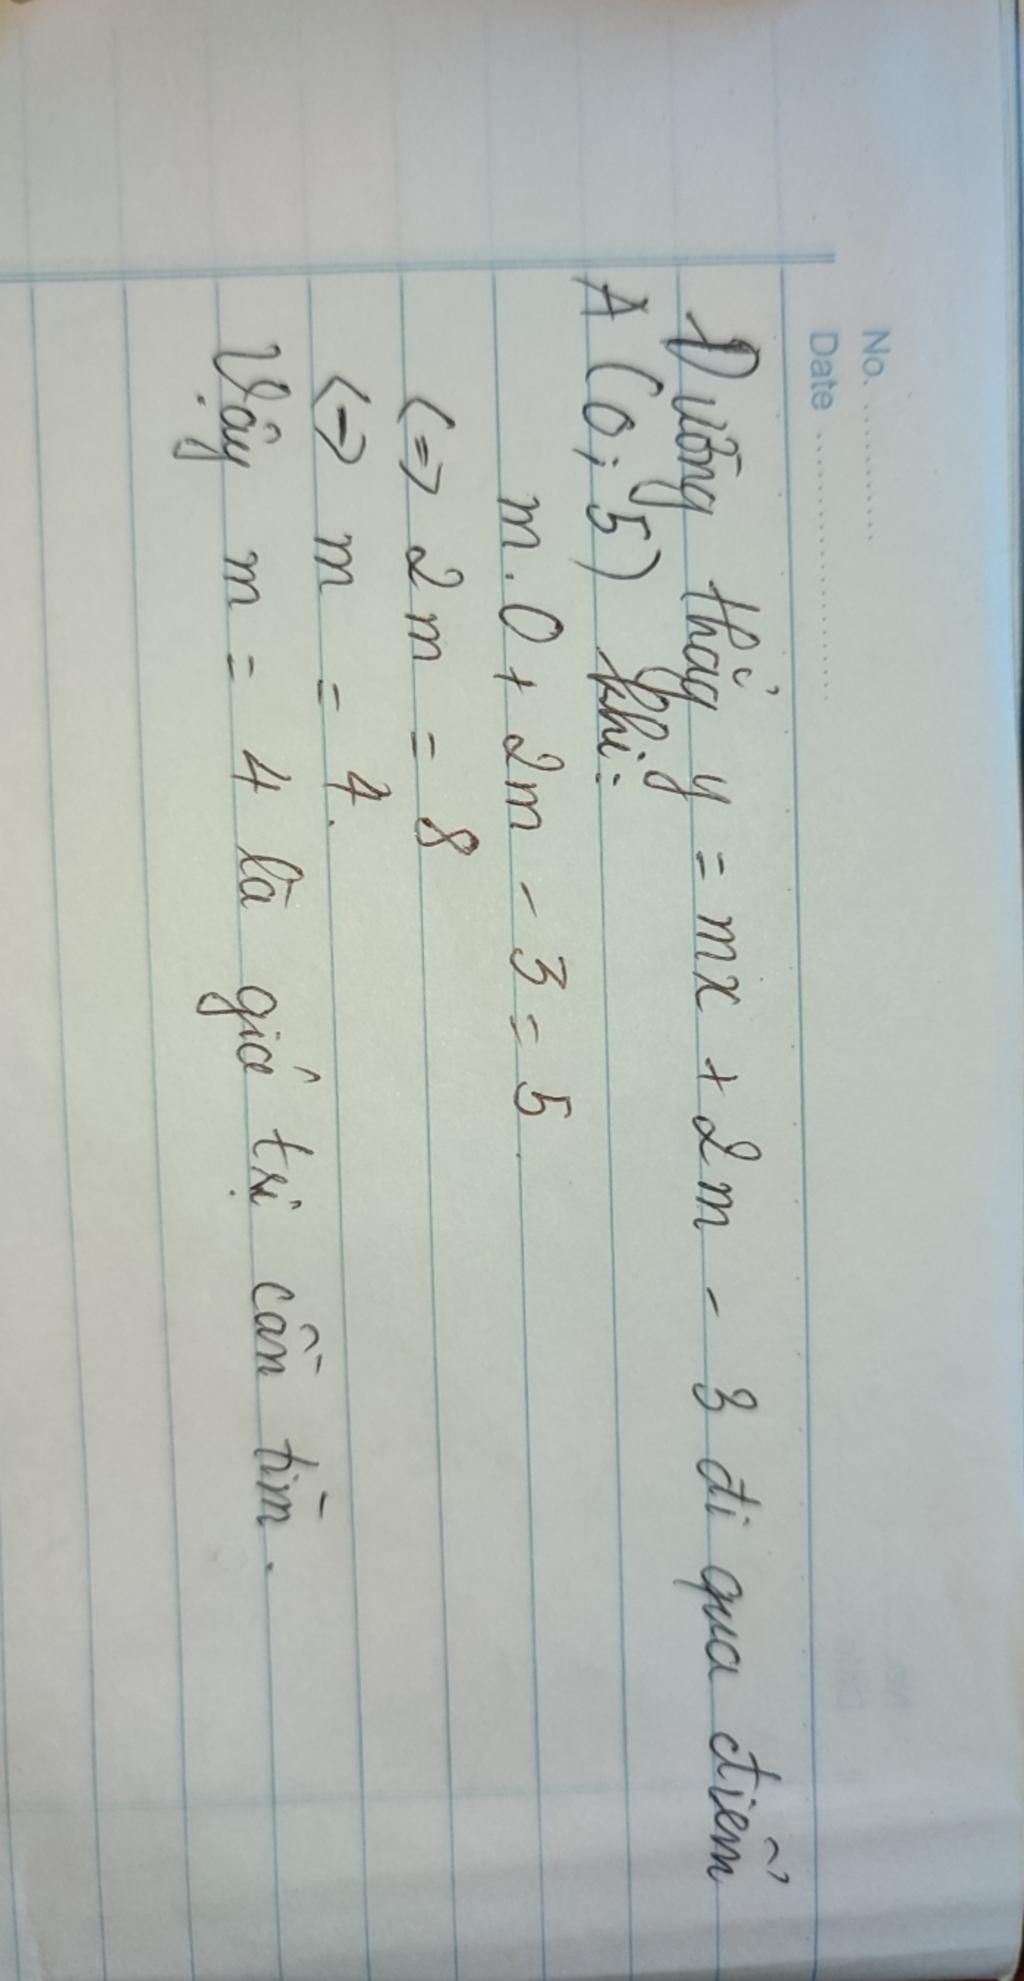 No. ................
Date ..........................
Đường thẳng y = mx + 2m - 3 đi qua điểm
A (0; 5) khi:
m. 0 + 2m - 3 = 5
<=> 2m = 8
<=> m = 4.
Vậy m = 4 là giá trị cần tìm.